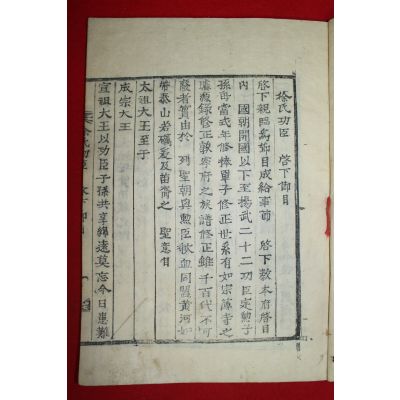 徐氏功臣 啓下節目
啓下親臨爲節目成給事節 啓下敎本府啓目
內 國朝開國以下至揚武二十二功臣定勳子
孫每當式年修捧單子修正世系有如宗簿寺之
璿源錄修正敦寧府之族譜修正雖千百代不可
廢者寔由於 列聖朝與勳臣歃血同盟黃河如
帶泰山若礪爰及苗裔之 聖意自
太祖大王至于
成宗大王
宣祖大王以功臣子孫共享綿遠莫忘今日患難
徐氏功臣